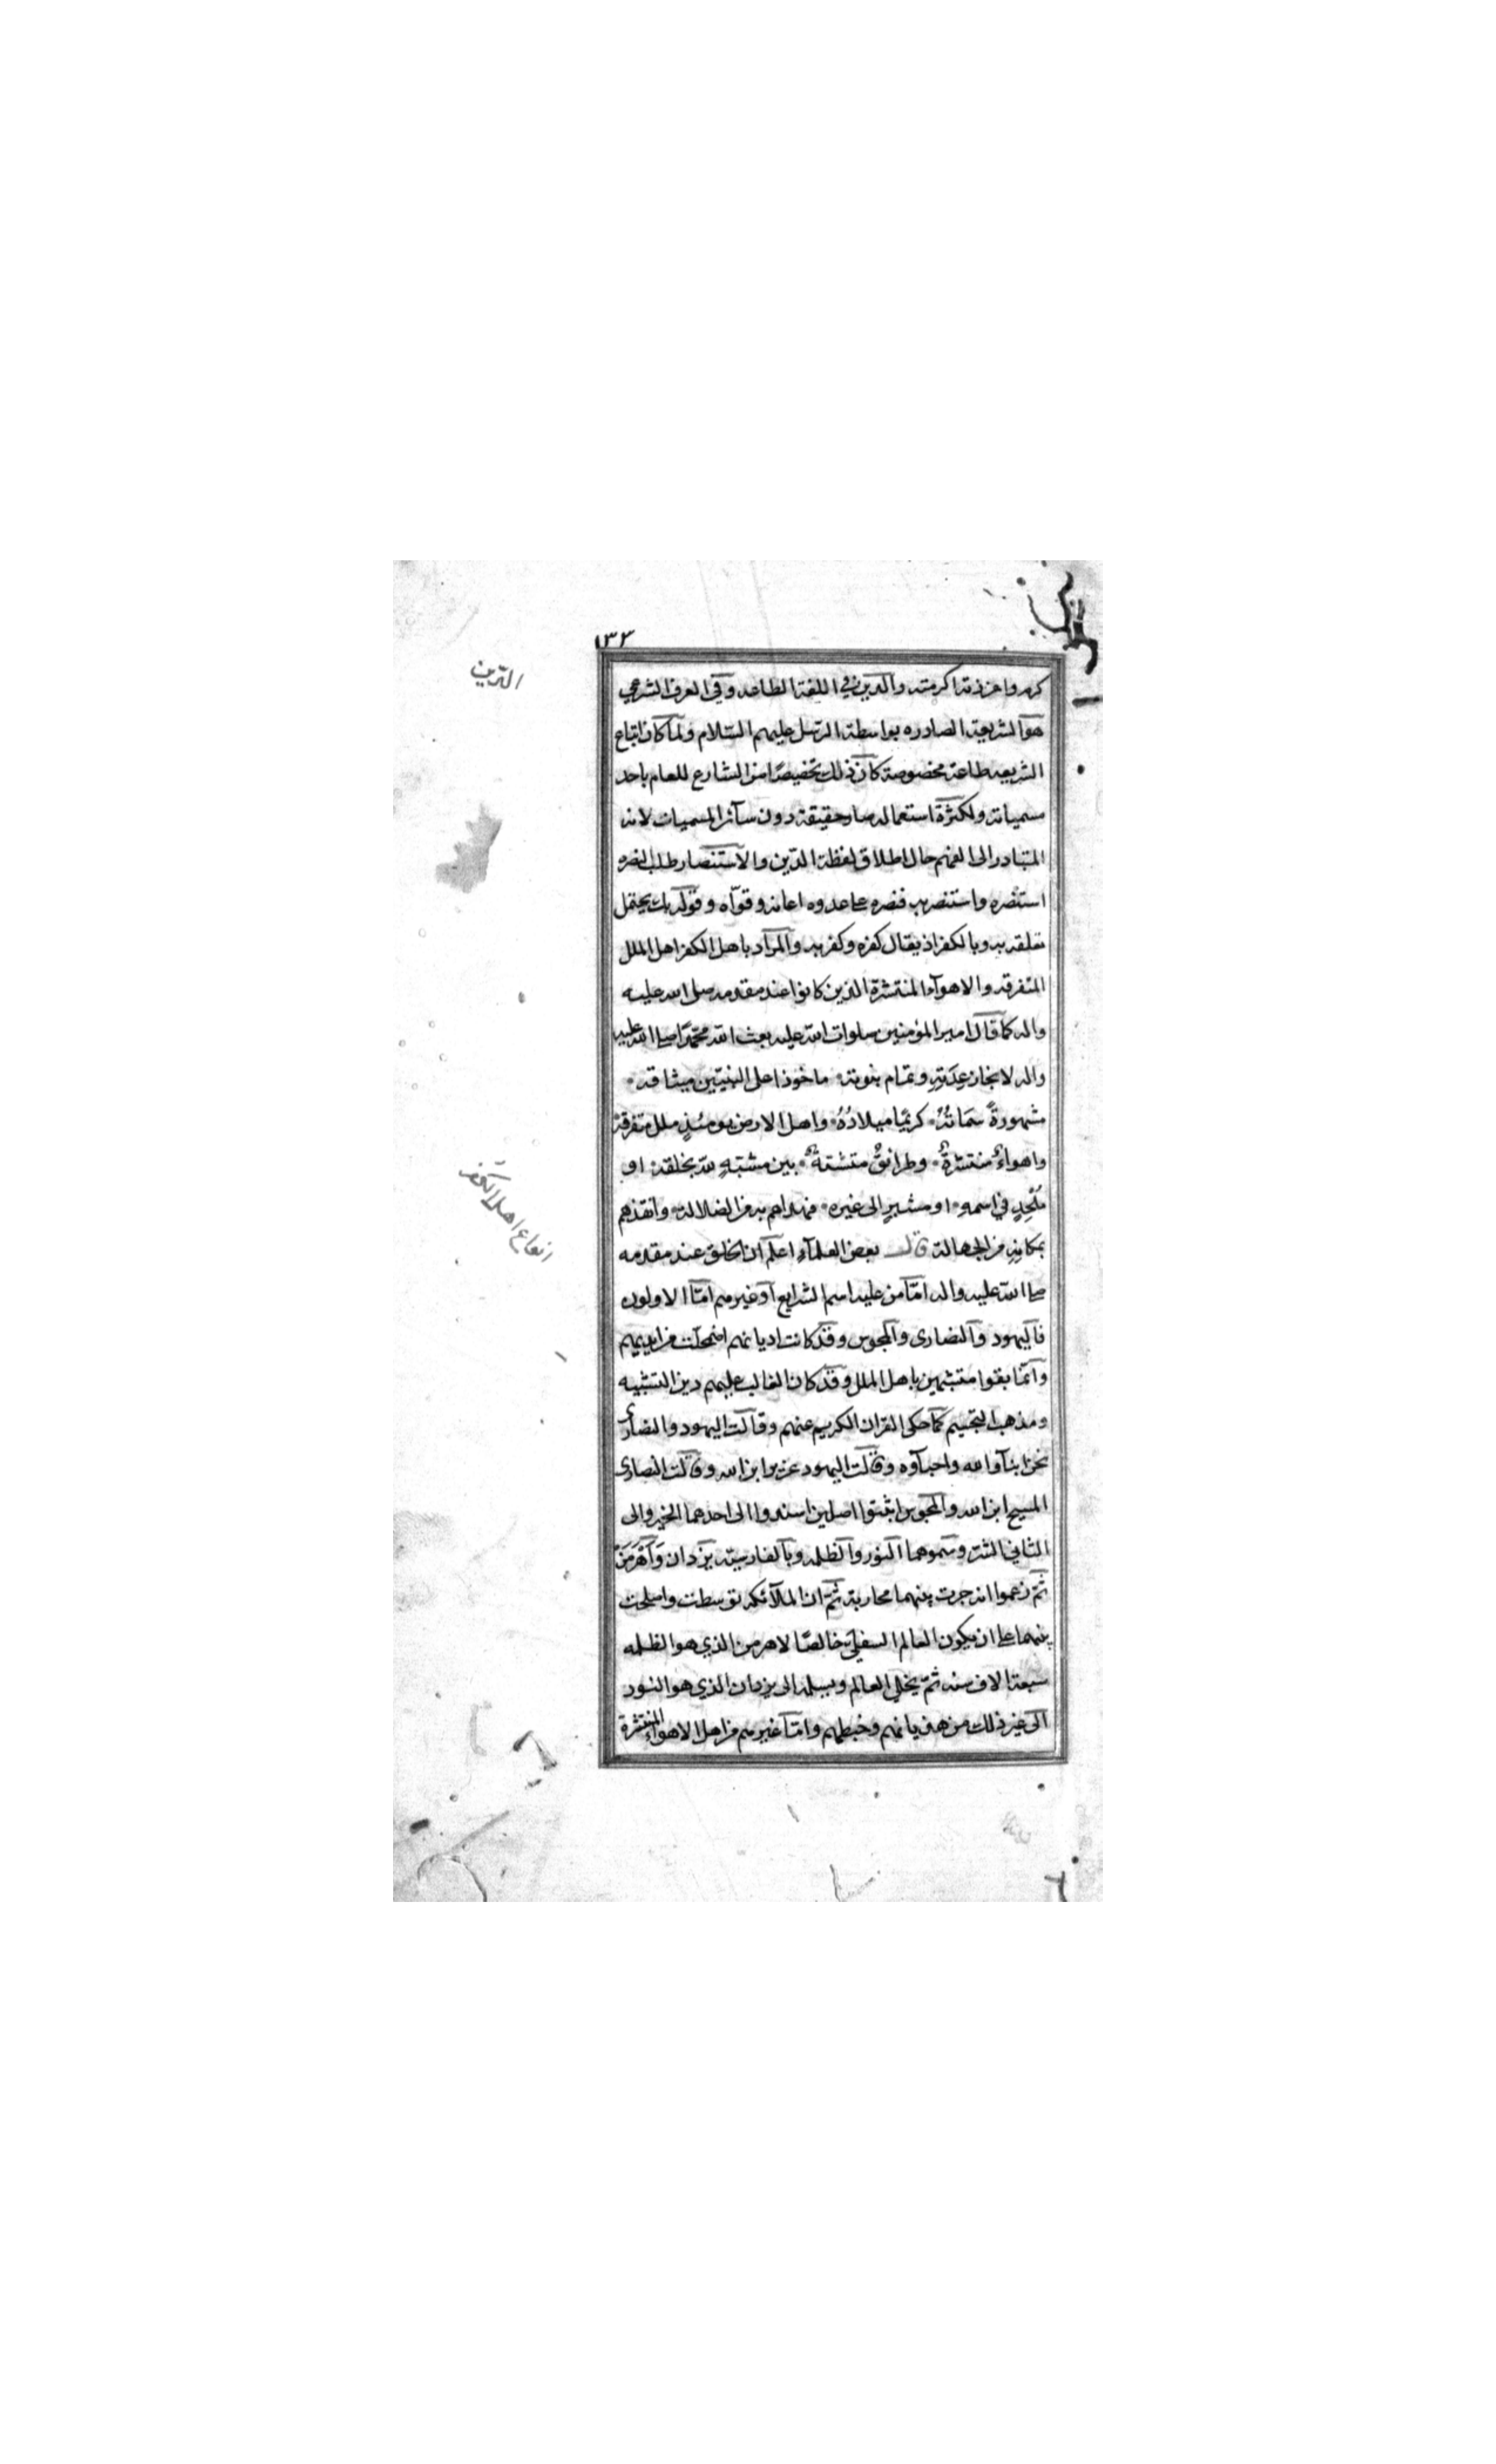 ١٣٣
الدين
كرم واعززته اكرمته والدين في اللغة الطاعه وفي العرف الشرعي
هو الشريعة الصادره بواسطة الرسل عليهم السّلام ولما كان اتباع
الشريعه طاعة مخصوصة كان ذلك تخصيصًا من الشارع للعام باحد
مسمياته ولكثرة استعماله صار حقيقة دون سآئر المسميات لانه
المتبادر الى الفهم حال اطلاق لفظة الدّين والاستنصار طلب النصره
استنصره واستنصر به فنصره على عدوه اعانه وقوّاه وقوله بك يحتمل
تعلقه به وبالكفر اذ يقال كفره وكفر به والمراد باهل الكفر اهل الملل
المتفرقه والاهوآء المنتشرة الذين كانوا عند مقدمه صلى الله عليه
واله كما قال امير المؤمنين صلوات الله عليه بعث الله محمّدًا صلى الله عليه
واله لانجاز عِدَتِهِ وتمام نبوته ماخوذا على النبيّين ميثاقه
مشهورةً سَمَاتُهُ كريمًا ميلادُهُ واهل الارض يومئذٍ ملل متفرقة
واهواءٌ منتشرةٌ وطرائقٌ متشتةٌ بين مشبّهٍ لله بخلقه او
انواع اهل الكفر
مُلْحِدٍ في اسمه او مشيرٍ الى غيره فهداهم به من الضلالة وانقذهم
بمكانِهِ من الجهالة قال بعض العلمآء اعلم ان الخلق عند مقدمه
صلى الله عليه واله امّا من عليه اسم الشرايع او غيرهم امّا الاولون
فاليهود والنصارى والمجوس وقد كانت اديانهم اضمحلّت من ايديهم
وانّما بقوا متشبهين باهل الملل وقد كان الغالب عليهم دين التشبيه
ومذهب التجسيم كما حكى القران الكريم عنهم وقالت اليهود والنصارى
نحن ابنآؤا الله واحبآؤه وقالت اليهود عزير ابن الله وقالت النصارى
المسيح ابن الله والمجوس اثبتوا اصلين اسندوا الى احدهما الخير والى
الثاني الشر وسموهما النور والظلمه وبالفارسية يزدان وَاَهْرَمَنْ
ثمّ زعموا انه جرت بينهما محاربة ثمّ ان الملآئكه توسطت واصلحت
بينهما على ان يكون العالم السفليّ خالصًا لاهرمن الذي هو الظلمه
سبعة الاف سنه ثمّ يخلي العالم ويسلمه الى يزدان الذي هو النور
الى غير ذلك من هذياناتهم وخبطهم وامّا غيرهم من اهل الاهواء المنتشرة